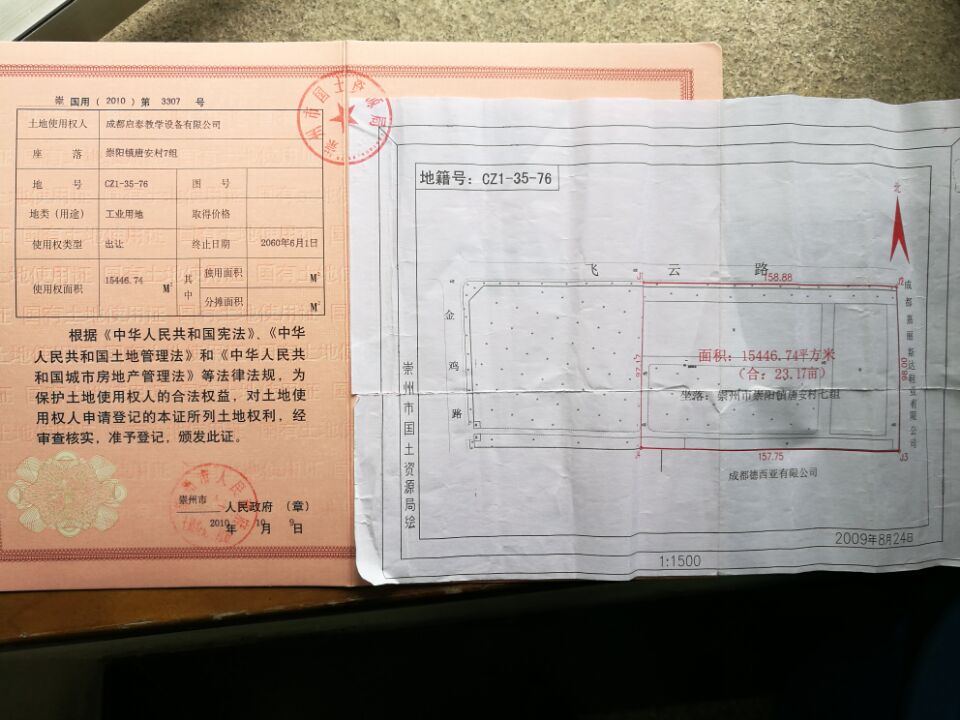 崇 国用（2010）第 3307 号
土地使用权人 成都启泰教学设备有限公司
座 落 崇阳镇唐安村7组
地 号 CZ1-35-76 图 号
地类（用途） 工业用地 取得价格
使用权类型 出让 终止日期 2060年6月1日
使用权面积 15446.74 M² 其中 独用面积 M²
分摊面积 M²
根据《中华人民共和国宪法》、《中华
人民共和国土地管理法》和《中华人民共
和国城市房地产管理法》等法律法规，为
保护土地使用权人的合法权益，对土地使
用权人申请登记的本证所列土地权利，经
审查核实，准予登记，颁发此证。
崇州市 人民政府 （章）
2010 年 10 月 9 日
崇州市国土资源局
地籍号：CZ1-35-76
北
飞 云 路
J1 158.88 J2
金 鸡 路
97.17
面积：15446.74平方米
（合：23.17亩）
坐落：崇州市崇阳镇唐安村七组
98.00
157.75 J3
成都德西亚有限公司
崇州市国土资源局绘
2009年8月24日
1:1500